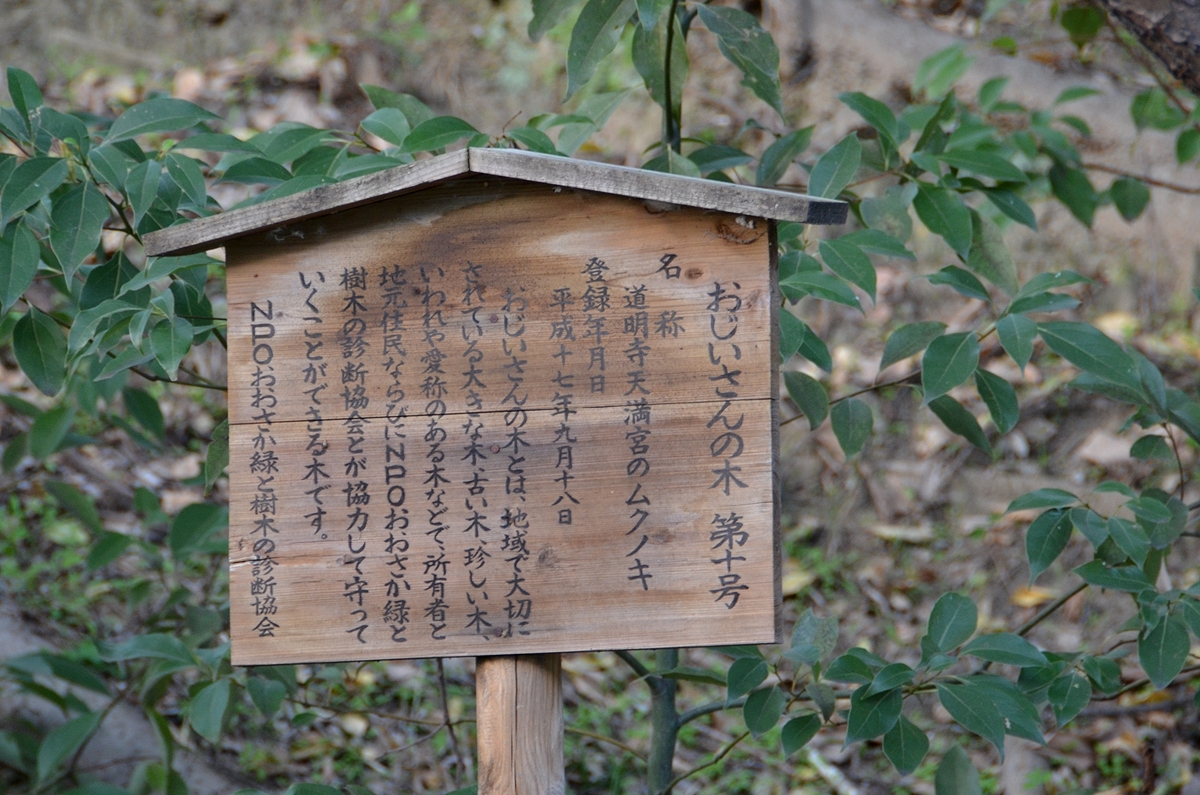 おじいさんの木 第十号
名称
道明寺天満宮のムクノキ
登録年月日
平成十七年九月十八日
おじいさんの木とは、地域で大切に
されている大きな木、古い木、珍しい木、
いわれや愛称のある木などで、所有者と
地元住民ならびにNPOおおさか緑と
樹木の診断協会とが協力して守って
いくことができる木です。
NPO、おおさか緑と樹木の診断協会